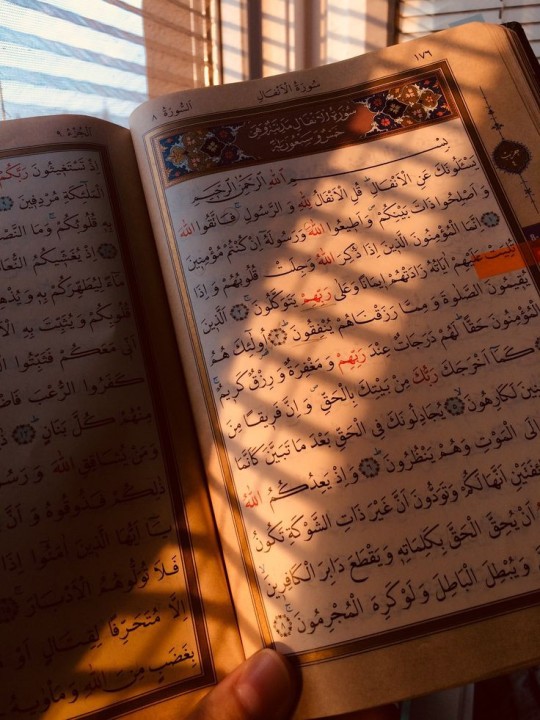 ١٧٦
سُورَةُ الْاَنْفَالِ
اَلسُّورَةُ ٨
سُورَةُ الْاَنْفَالِ مَدَنِيَّةٌ وَهِيَ
بِسْمِ اللّٰهِ الرَّحْمٰنِ الرَّحِيمِ
يَسْـَٔلُونَكَ عَنِ الْاَنْفَالِ قُلِ الْاَنْفَالُ لِلّٰهِ وَ الرَّسُولِ فَاتَّقُوا اللّٰهَ
وَ اَصْلِحُوا ذَاتَ بَيْنِكُمْ وَ اَطِيعُوا اللّٰهَ وَرَسُولَهُ اِنْ كُنْتُمْ مُؤْمِنِينَ
اِنَّمَا الْمُؤْمِنُونَ الَّذِينَ اِذَا ذُكِرَ اللّٰهُ وَجِلَتْ قُلُوبُهُمْ وَ اِذَا
تُلِيَتْ عَلَيْهِمْ اٰيَاتُهُ زَادَتْهُمْ اِيمَانًا وَعَلٰى رَبِّهِمْ يَتَوَكَّلُونَ الَّذِينَ
يُقِيمُونَ الصَّلٰوةَ وَ مِمَّا رَزَقْنَاهُمْ يُنْفِقُونَ اُولٰئِكَ هُمُ
الْمُؤْمِنُونَ حَقًّا لَهُمْ دَرَجَاتٌ عِنْدَ رَبِّهِمْ وَ مَغْفِرَةٌ وَ رِزْقٌ كَرِيمٌ
كَمَا اَخْرَجَكَ رَبُّكَ مِنْ بَيْتِكَ بِالْحَقِّ وَ اِنَّ فَرِيقًا مِنَ
لَكَارِهُونَ يُجَادِلُونَكَ فِي الْحَقِّ بَعْدَ مَا تَبَيَّنَ كَاَنَّمَا
اِلَى الْمَوْتِ وَهُمْ يَنْظُرُونَ وَ اِذْ يَعِدُكُمُ اللّٰهُ
اَنَّهَا لَكُمْ وَتَوَدُّونَ اَنَّ غَيْرَ ذَاتِ الشَّوْكَةِ تَكُونُ
اَنْ يُحِقَّ الْحَقَّ بِكَلِمَاتِهِ وَ يَقْطَعَ دَابِرَ الْكَافِرِينَ
وَ يُبْطِلَ الْبَاطِلَ وَ لَوْ كَرِهَ الْمُجْرِمُونَ
اَلْجُزْءُ ٩
اِذْ تَسْتَغِيثُونَ رَبَّكُمْ
الْمَلٰئِكَةِ مُرْدِفِينَ
بِهِ قُلُوبُكُمْ وَمَا النَّصْرُ
اِذْ يُغَشِّيكُمُ النُّعَاسَ
مَاءً لِيُطَهِّرَكُمْ بِهِ وَ يُذْهِبَ
قُلُوبِكُمْ وَ يُثَبِّتَ بِهِ
اَنِّي مَعَكُمْ فَثَبِّتُوا
كَفَرُوا الرُّعْبَ
مِنْهُمْ كُلَّ بَنَانٍ
وَ مَنْ يُشَاقِقِ اللّٰهَ وَ رَسُولَهُ
ذٰلِكُمْ فَذُوقُوهُ وَ اَنَّ
يَا اَيُّهَا الَّذِينَ اٰمَنُوا اِذَا
فَلَا تُوَلُّوهُمُ الْاَدْبَارَ
اِلَّا مُتَحَرِّفًا لِقِتَالٍ اَوْ
بِغَضَبٍ مِنَ اللّٰهِ وَ مَأْوٰيهُ